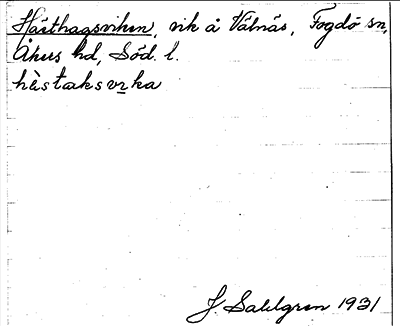 Hästhagsviken, vik å Valnäs, Fogdö sn,
Åkers hd, Söd. l.
hèstaksvɪka
J. Sahlgren 1931